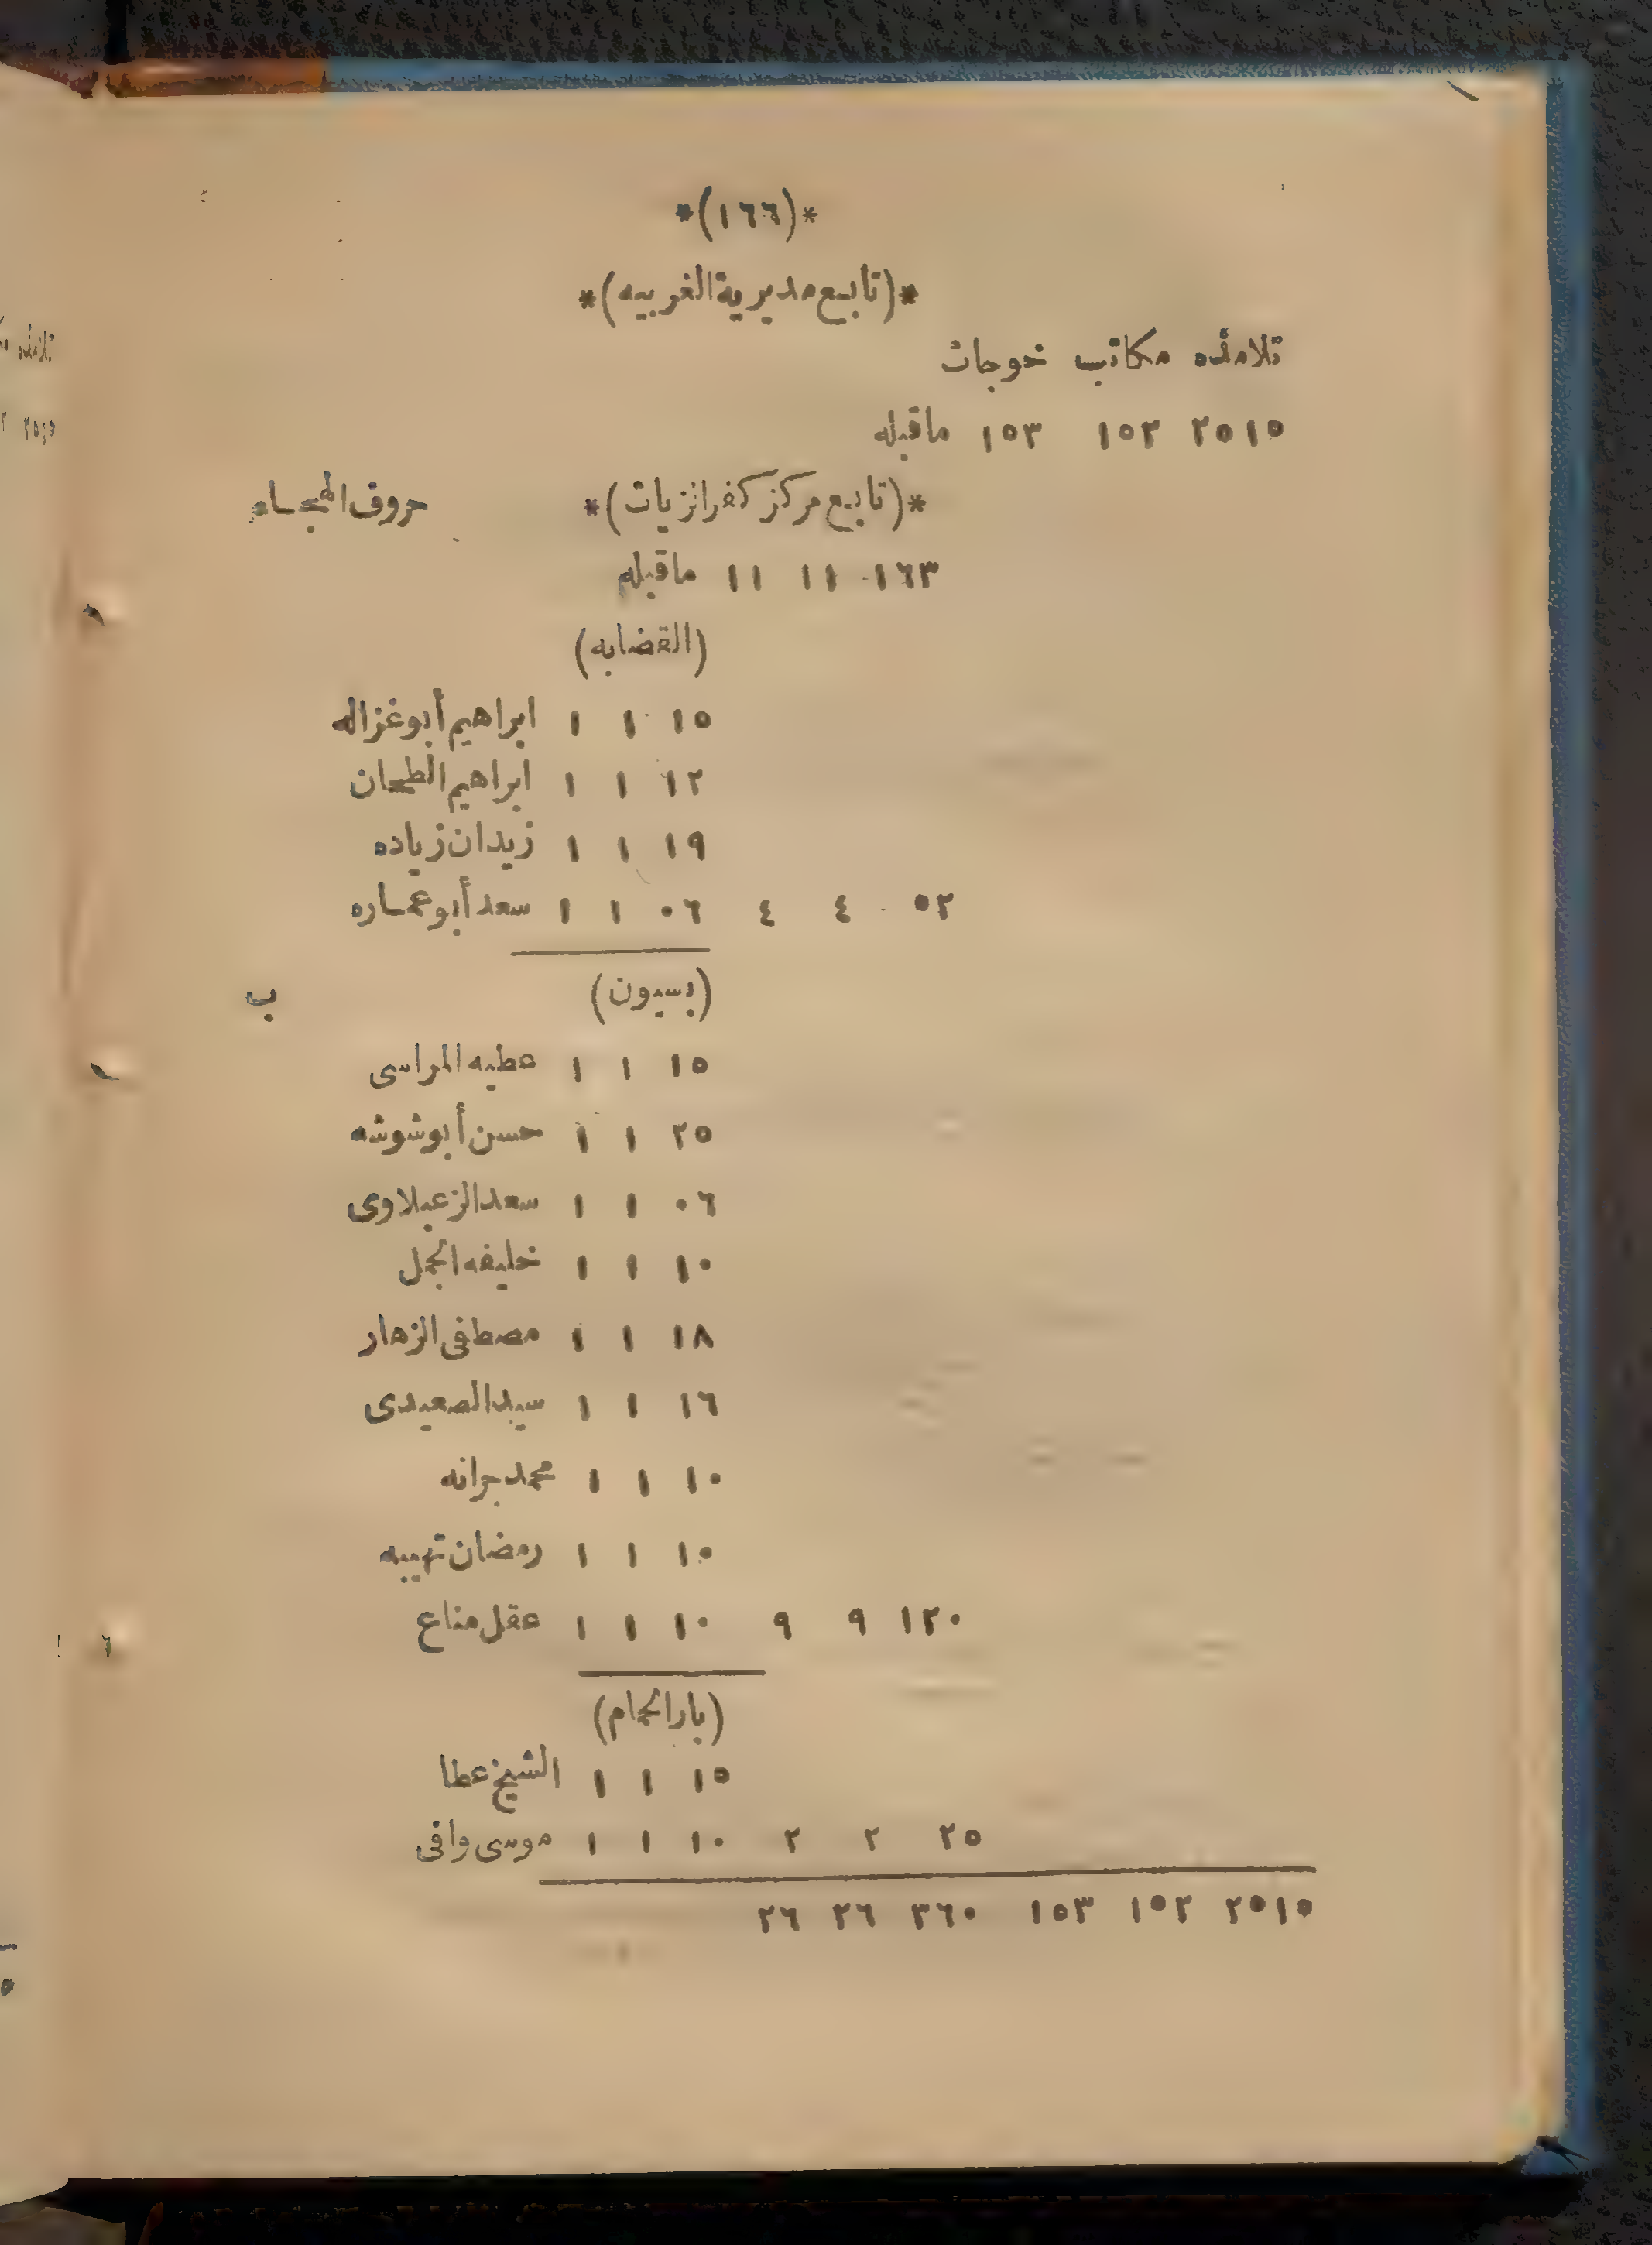 *(١٦٦)*
*(تابع مديرية الغربيه)*
تلامذه مكاتب خوجات
٢٥١٥ ١٥٢ ١٥٣ ماقبله
*(تابع مركز كفرالزيات)* حروف الهجاء
١٦٣ ١١ ١١ ماقبله
(القضابه)
١٥ ١ ١ ابراهيم أبوغزاله
١٢ ١ ١ ابراهيم الطحان
١٩ ١ ١ زيدان زياده
٥٢ ٤ ٤ ٠٦ ١ ١ سعد أبوعماره
(بسيون) ب
١٥ ١ ١ عطيه المراسى
٢٥ ١ ١ حسن أبوشوشه
٠٦ ١ ١ سعد الزعبلاوى
١٠ ١ ١ خليفه الجمل
١٨ ١ ١ مصطفى الزهار
١٦ ١ ١ سيد الصعيدى
١٠ ١ ١ محمد جرانه
١٠ ١ ١ رمضان
١٢٠ ٩ ٩ ١٠ ١ ١ عقل مناع
(بارالحمام)
١٥ ١ ١ الشيخ عطا
٢٥ ٢ ٢ ١٠ ١ ١ موسى وافى
٢٥١٥ ١٥٢ ١٥٣ ٣٦٠ ٢٦ ٢٦